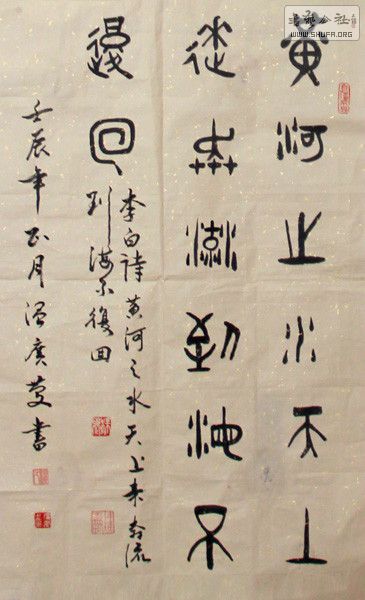 黄河之水天上
來奔流到海不
復回
李白詩黄河之水天上来奔流
到海不復回
壬辰年正月 廣 書
公社
WWW.SHUFA.ORG